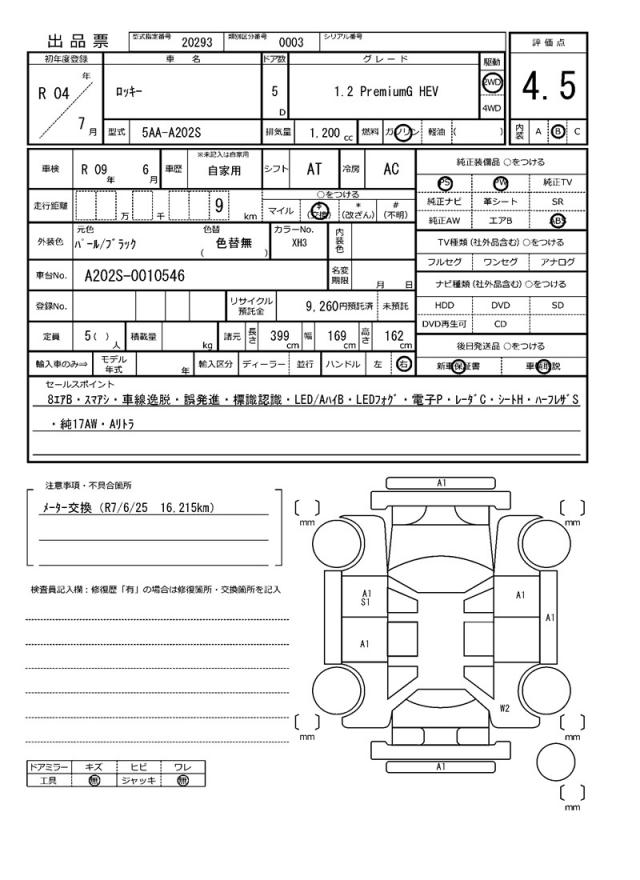 出品票 型式指定番号 20293 類別区分番号 0003 シリアル番号
評価点
4.5
内装 A B C
初年度登録 車名 ドア数 グレード 駆動
R 04 年 7 月
ロッキー 5 D 1.2 PremiumG HEV 2WD 4WD
型式 5AA-A202S 排気量 1.200 cc 燃料 ガソリン 軽油 ( )
車検 R 09 年 6 月 車歴 ※未記入は自家用 自家用 シフト AT 冷房 AC
走行距離 万 千 9 km ○をつける
マイル $ (交換) * (改ざん) # (不明)
外装色 元色 パール/ブラック 色替 ( 色替無 ) カラーNo. XH3 内装色
車台No. A202S-0010546 名変期限 月 日
登録No. リサイクル預託金 9,260円預託済 未預託
定員 5( ) 人 積載量 kg 諸元 長さ 399 cm 幅 169 cm 高さ 162 cm
輸入車のみ⇒ モデル年式 年 輸入区分 ディーラー 並行 ハンドル 左 右
純正装備品 ○をつける
PS PW 純正TV
純正ナビ 革シート SR
純正AW エアB ABS
TV種類(社外品含む) ○をつける
フルセグ ワンセグ アナログ
ナビ種類(社外品含む) ○をつける
HDD DVD SD
DVD再生可 CD
後日発送品 ○をつける
新車保証書 車輌取説
セールスポイント
8エアB・スマアシ・車線逸脱・誤発進・標識認識・LED/AハイB・LEDフォグ・電子P・レーダC・シートH・ハーフレザS
・純17AW・Aリトラ
注意事項・不具合箇所
メーター交換 (R7/6/25 16.215km)
検査員記入欄:修復歴「有」の場合は修復箇所・交換箇所を記入
ドアミラー キズ ヒビ ワレ
工具 無 ジャッキ 無
A1
mm
mm
A1
S1
A1
A1
A1
W2
mm
mm
A1
mm